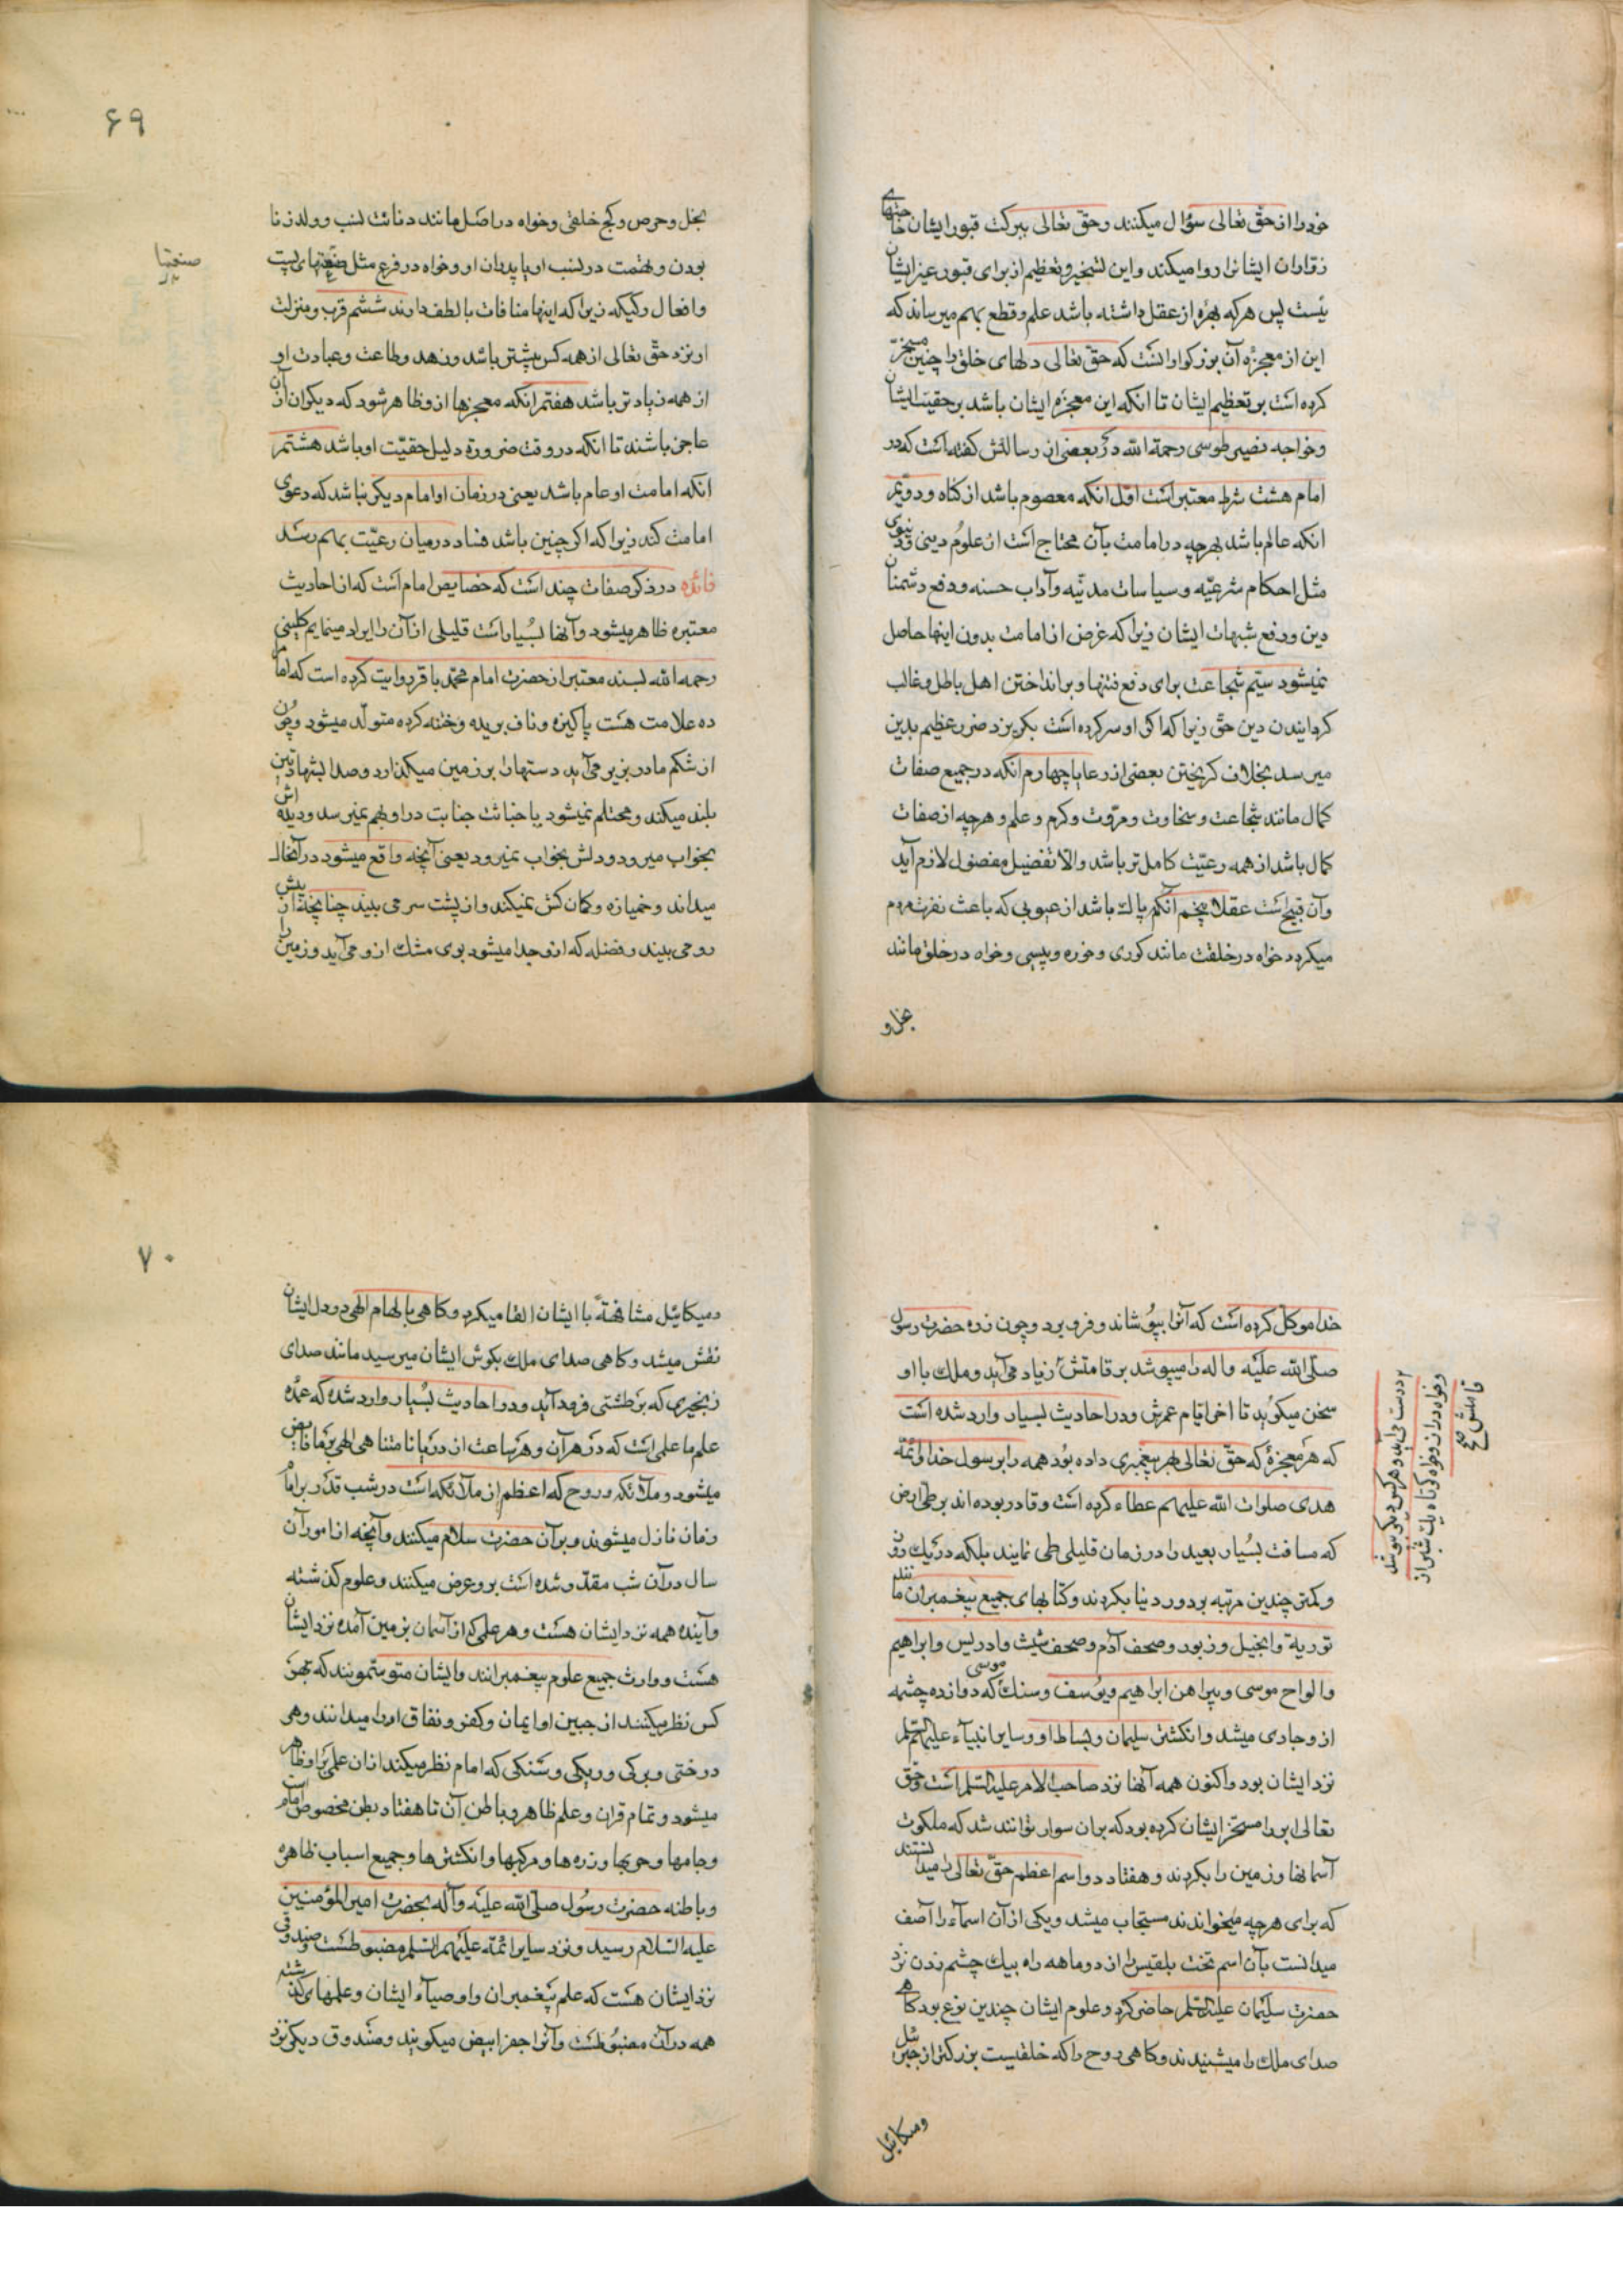 خود را از حقّ تعالی سؤال میکنند و حقّ تعالی ببرکت قبور ایشان حاجتهای
زوّاران ایشانرا روا میکند و این تسخیر و تعظیم از برای قبور غیر ایشان
نیست پس هر که بهره از عقل داشته باشد علم و قطع بهم میرساند که
این از معجزه آن بزرکوارانست که حقّ تعالی دلهای خلق را چنین مسخّر
کرده است بر تعظیم ایشان تا انکه این معجزه ایشان باشد بر حقیّت ایشان
و خواجه نصیر طوسی رحمة الله در بعضی از رسالتش کفته است که در
امام هشت شرط معتبر است اوّل انکه معصوم باشد از کناه و دویّم
انکه عالم باشد بهر چه در امامت بآن محتاج است از علوم دینی و دنیوی
مثل احکام شرعیّه و سیاسات مدنیّه و آداب حسنه و دفع دشمنان
دین و رفع شبهات ایشان زیرا که غرض از امامت بدون اینها حاصل
نمیشود سیّم شجاعت برای دفع فتنها و بر انداختن اهل باطل و غالب
کردانیدن دین حق زیرا که اکر او سر کرده است بکریزد ضرر عظیم بدین
میرسد بخلاف کریختن بعضی از رعایا چهارم انکه در جمیع صفات
کمال مانند شجاعت و سخاوت و مروّت و کرم و علم و هر چه از صفات
کمال باشد از همه رعیّت کامل تر باشد و الّا تفضیل مفضول لازم آید
و آن قبیح است عقلا پنجم آنکه پاک باشد از عیوبی که باعث نفرت مردم
میکردد خواه در خلقت مانند کوری و خوره و پیسی و خواه در خلق مانند
بخل و
۶۹
بخل و حرص و کج خلقی و خواه در اصل مانند دنائت نسب و ولد زنا
بودن و تهمت در نسب او یا پدران او و خواه در فرع مثل صنعتهای پست
صنعتها
و افعال رکیکه زیرا که اینها منافات با لطف دارند ششم قرب و منزلت
او نزد حقّ تعالی از همه کس بیشتر باشد و زهد و طاعت و عبادت او
از همه زیادتر باشد هفتم انکه معجزها از و ظاهر شود که دیکران از آن
عاجز باشند تا انکه در وقت ضرورة دلیل حقیّت او باشد هشتم
انکه امامت او عام باشد یعنی در زمان او امام دیکر نباشد که دعوی
امامت کند زیرا که اکر چنین باشد فساد در میان رعیّت بهم رسد
فائده در ذکر صفات چند است که خصایص امام است که از احادیث
معتبره ظاهر میشود و آنها بسیار است قلیلی از آن را ایراد مینمایم کلینی
رحمه الله بسند معتبر از حضرت امام محمّد باقر روایت کرده است که امام
ده علامت هست پاکیزه و ناف بریده و ختنه کرده متولّد میشود و چون
از شکم مادر بزیر می آید دستها را بر زمین میکذارد و صدا بشهادتین
بلند میکند و محتلم نمیشود یا خباثت جنابت در او بهم نمیرسد و دیده اش
بخواب میرود و دلش بخواب نمیرود یعنی آنچه واقع میشود در آنحال
میداند و خمیازه و کمان کش نمیکند و از پشت سر می بیند چنانچه از پیش
رو می بیند و فضله که از و جدا میشود بوی مشک از و می آید و زمین را
خدا موکل کرده است که آنرا بپوشاند و فرو برد و چون زره حضرت رسول
صلّی الله علیه و اله را میپوشد بر قامتش زیاد می آید و ملک با او
درست می آید و هر کس دیکر بپوشد
و خواه دراز و خواه کوتاه یک شبر از
قامتش
صح
سخن میکوید تا اخر ایّام عمرش و در احادیث بسیار وارد شده است
که هر معجزهٔ که حقّ تعالی بهر پیغمبری داده بود همه را برسول خدا و ائمّه
هدی صلوات الله علیهم عطاء کرده است و قادر بوده اند بر طی ارض
که مسافت بسیار بعید را در زمان قلیلی طی نمایند بلکه در یک روز
و کمتر چندین مرتبه بر دور دنیا بکردند و کتابهای جمیع پیغمبران مانند
توریة و انجیل و زبور و صحف آدم و صحف شیث و ادریس و ابراهیم
و الواح موسی و پیراهن ابراهیم و یوسف و سنک موسی که دوازده چشمه
از و جاری میشد و انکشتر سلیمان و بساط او و سایر انبیاء علیهم السلم
نزد ایشان بود و اکنون همه آنها نزد صاحب الامر علیه السلم است و حق
تعالی ابر را مسخّر ایشان کرده بود که بر ان سوار توانند شد که ملکوت
آسمانها و زمین را بکردند و هفتاد دو اسم اعظم حقّ تعالی را میدانستند
که برای هر چه میخواندند مستجاب میشد و یکی از آن اسماء را آصف
میدانست بآن اسم تخت بلقیس را از دو ماهه راه بیک چشم زدن نزد
حضرت سلیمان علیه السلم حاضر کرد و علوم ایشان چندین نوع بود کاهی
صدای ملک را میشنیدند و کاهی روح را که خلقیست بزرکتر از جبرئیل
و میکائیل
۷۰
و میکائیل مشافهةً با ایشان القا میکرد و کاهی بالهام الهی در دل ایشان
نقش میشد و کاهی صدای ملک بکوش ایشان میرسید مانند صدای
زنجیری که بر طشتی فرود آید و در احادیث بسیار وارد شده که عمده
علم ما علمی است که در هر آن و هر ساعت از دریا نامتناهی الهی بر ما فایض
میشود و ملائکه و روح که اعظم از ملائکه است در شب قدر بر امام
زمان نازل میشوند و بر آن حضرت سلام میکنند و آنچه از امور آن
سال در آن شب مقدّر شده است بر و عرض میکنند و علوم کذشته
و آینده همه نزد ایشان هست و هر علمی که از آسمان بزمین آمده نزد ایشان
هست و وارث جمیع علوم پیغمبرانند و ایشان متوسّمونند که بهر
کس نظر میکنند از جبین او ایمان و کفر و نفاق او را میدانند و هر
درختی و برکی و ریکی و سنکی که امام نظر میکند از ان علمی بر او ظاهر
میشود و تمام قران و علم ظاهر و باطن آن تا هفتاد بطن مخصوص امام است
و جامها و حربها و زره ها و مرکبها و انکشترها و جمیع اسباب ظاهره
و باطنه حضرت رسول صلّی الله علیه و آله بحضرت امیر المؤمنین
علیه السّلام رسید و نزد سایر ائمّه علیهم السلم مضبوطست و صندوقی
نزد ایشان هست که علم پیغمبران و اوصیاء ایشان و علمهای کذشته
همه در آن مضبوطست و آنرا جفر ابیض میکویند و صندوق دیکر نزد